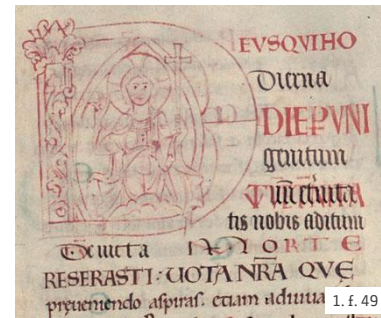 EUSQUIHO
DIERNA
DIEPUNI
genitum
tis nobis aditum
Deuicta IN MORTE
RESERASTI: UOTA NRA QUE
preueniendo aspiras. etiam adiuua
1. f. 49